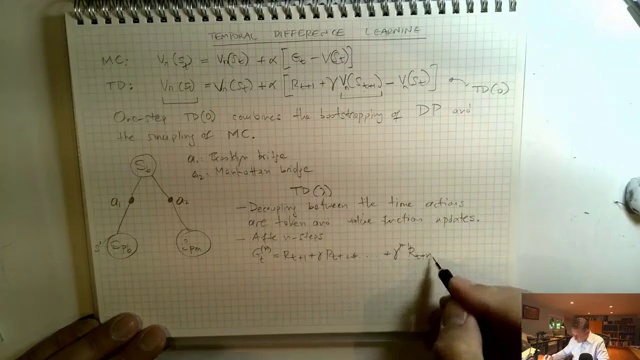 TEMPORAL DIFFERENCE LEARNING
MC: Vπ(St) = Vπ(St) + α [Gt − V(St)]
TD: Vπ(St) = Vπ(St) + α [Rt+1 + γ Vπ(St+1) − Vπ(St)] TD(0)
One-step TD(0) combines the bootstrapping of DP and
the sampling of MC.
a1: Brooklyn bridge
a2: Manhattan bridge
a1 a2
TD(λ)
- Decoupling between the time actions
are taken and value function updates.
- After n-steps
Gt(n) = Rt+1 + γ Rt+2 + . . . + γn-1 Rt+n